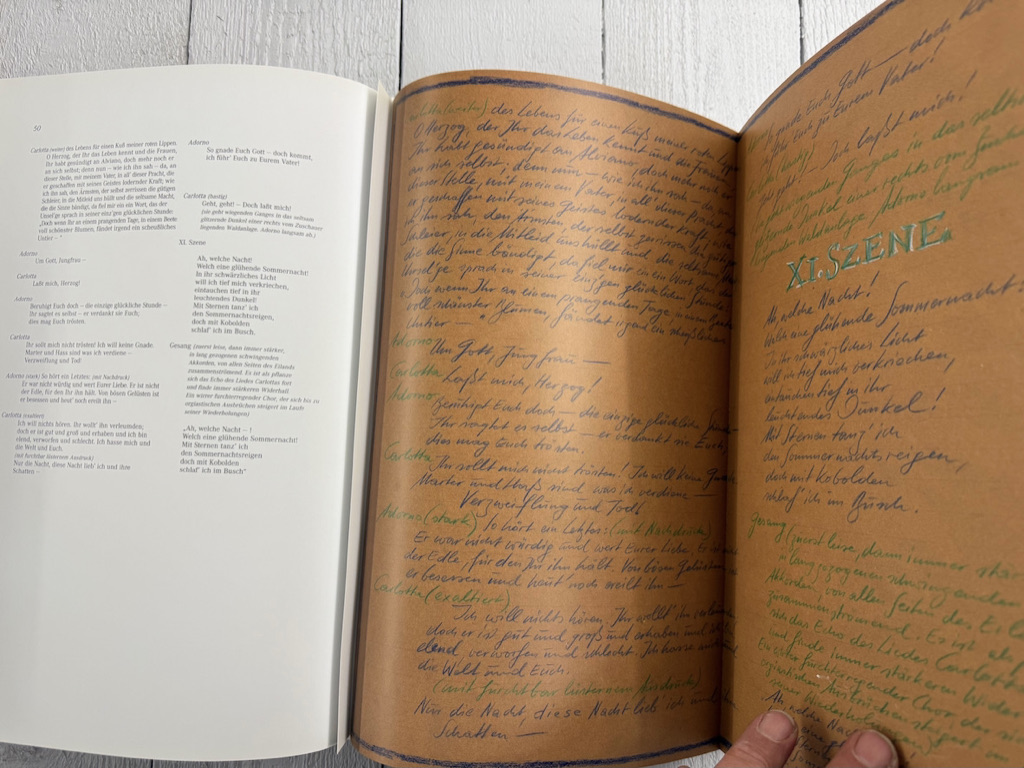 50
Carlotta (weiter) des Lebens für einen Kuß meiner roten Lippen.
O Herzog, der Ihr das Leben kennt und die Frauen,
Ihr habt gesündigt an Alviano, doch mehr noch er
an sich selbst; denn nun – wie ich ihn sah – da, an
dieser Stelle, mit meinem Vater, in all' dieser Pracht, die
er geschaffen mit seines Geistes lodernder Kraft; wie
ich ihn sah, den Ärmsten, der selbst zerrissen die gütigen
Schleier, in die Mitleid uns hüllt und die seltsame Macht,
die die Sinne bändigt, da fiel mir ein Wort, das der
Unsel'ge sprach in seiner einz'gen glücklichen Stunde:
„Doch wenn Ihr an einem prangenden Tage, in einem Beete
voll schönster Blumen, fändet irgend ein scheußliches
Untier – "
Adorno
Um Gott, Jungfrau –
Carlotta
Laßt mich, Herzog!
Adorno
Beruhigt Euch doch – die einzige glückliche Stunde –
Ihr sagtet es selbst – er verdankt sie Euch;
dies mag Euch trösten.
Carlotta
Ihr sollt mich nicht trösten! Ich will keine Gnade.
Marter und Haß sind was ich verdiene –
Verzweiflung und Tod!
Adorno (stark) So hört ein Letztes: (mit Nachdruck)
Er war nicht würdig und wert Eurer Liebe. Er ist nicht
der Edle, für den Ihr ihn hält. Von bösen Gelüsten ist
er besessen und heut' noch ereilt ihn –
Carlotta (exaltiert)
Ich will nichts hören. Ihr wollt' ihn verleumden;
doch er ist gut und groß und erhaben und ich bin
elend, verworfen und schlecht. Ich hasse mich und
die Welt und Euch.
(mit furchtbar lüsternem Ausdruck)
Nur die Nacht, diese Nacht lieb' ich und ihre
Schatten –
Adorno
So gnade Euch Gott – doch kommt,
ich führ' Euch zu Eurem Vater!
Carlotta (hastig)
Geht, geht! – Doch laßt mich!
(sie geht wiegenden Ganges in das seltsam
glitzernde Dunkel einer rechts vom Zuschauer
liegenden Waldanlage. Adorno langsam ab.)
XI. Szene
Ah, welche Nacht!
Welch eine glühende Sommernacht!
In ihr schwärzliches Licht
will ich tief mich verkriechen,
eintauchen tief in ihr
leuchtendes Dunkel!
Mit Sternen tanz' ich
den Sommernachtsreigen,
doch mit Kobolden
schlaf' ich im Busch.
Gesang (zuerst leise, dann immer stärker,
in lang gezogenen schwingenden
Akkorden, von allen Seiten des Eilands
zusammenströmend. Es ist als pflanze
sich das Echo des Liedes Carlottas fort
und finde immer stärkeren Widerhall.
Ein wirrer furchterregender Chor, der sich bis zu
orgiastischen Ausbrüchen steigert im Laufe
seiner Wiederholungen)
„Ah, welche Nacht – !
Welch eine glühende Sommernacht!
Mit Sternen tanz' ich
den Sommernachtsreigen
doch mit Kobolden
schlaf' ich im Busch"
(weiter) des Lebens für einen Kuß meiner roten Lippen
O Herzog, der Ihr das Leben kennt und die Frauen
Ihr habt gesündigt an Alviano, jedoch mehr noch
an sich selbst, denn nun – wie ich ihn sah – da, an
dieser Stelle, mit meinem Vater, in all' dieser Pracht, die
er geschaffen mit seines Geistes lodernder Kraft, wie
ich ihn sah, den Ärmsten, der selbst zerrissen die gütigen
Schleier, in die Mitleid uns hüllt und die seltsame
die die Sinne bändigt, da fiel mir ein ein Wort, das der
Unsel'ge sprach in seiner einz'gen glücklichen Stunde
„Doch wenn Ihr an einem prangenden Tage in einem Beete
voll schönster Blumen, fändet irgend ein scheußliches
Untier – "
Adorno
Um Gott, Jungfrau —
Carlotta
Laßt mich, Herzog!
Adorno
Beruhigt Euch doch – die einzige glückliche
Ihr sagtet es selbst – er verdankt sie Euch,
dies mag Euch trösten.
Carlotta
Ihr sollt mich nicht trösten! Ich will keine
Marter und Haß sind was ich verdiene —
Verzweiflung und Tod!
Adorno (stark) So hört ein Letztes: (mit Nachdruck)
Er war nicht würdig und wert Eurer Liebe. Er ist nicht
der Edle, für den Ihr ihn hält. Von bösen Gelüsten ist
er besessen und heut' noch ereilt ihn —
Carlotta (exaltiert)
Ich will nichts hören. Ihr wollt' ihn verleumden
doch er ist gut und groß und erhaben und ich
elend, verworfen und schlecht. Ich hasse mich
die Welt und Euch.
(mit furchtbar lüsternem Ausdruck)
Nur die Nacht, diese Nacht lieb' ich und ihre
Schatten —
gnade Euch Gott — doch
Euch zu Eurem Vater!
Doch laßt mich!
Ganges in das
Dunkel rechts vom
liegenden Waldanlage. Adorno langsam
XI. SZENE
Ah, welche Nacht!
Welch eine glühende Sommernacht
In ihr schwärzliches Licht
will ich tief mich verkriechen,
eintauchen tief in ihr
leuchtendes Dunkel!
Mit Sternen tanz' ich
den Sommernachtsreigen,
doch mit Kobolden
schlaf' ich im Busch.
Gesang (zuerst leise, dann immer
in lang gezogenen schwingenden
Akkorden, von allen Seiten des
zusammenströmend. Es ist als
sich das Echo des Liedes Carlottas
und finde immer stärkeren
Ein wirrer furchterregender Chor, der
orgiastischen Ausbrüchen steigert im
seiner Wiederholungen
Ah, welche Nacht